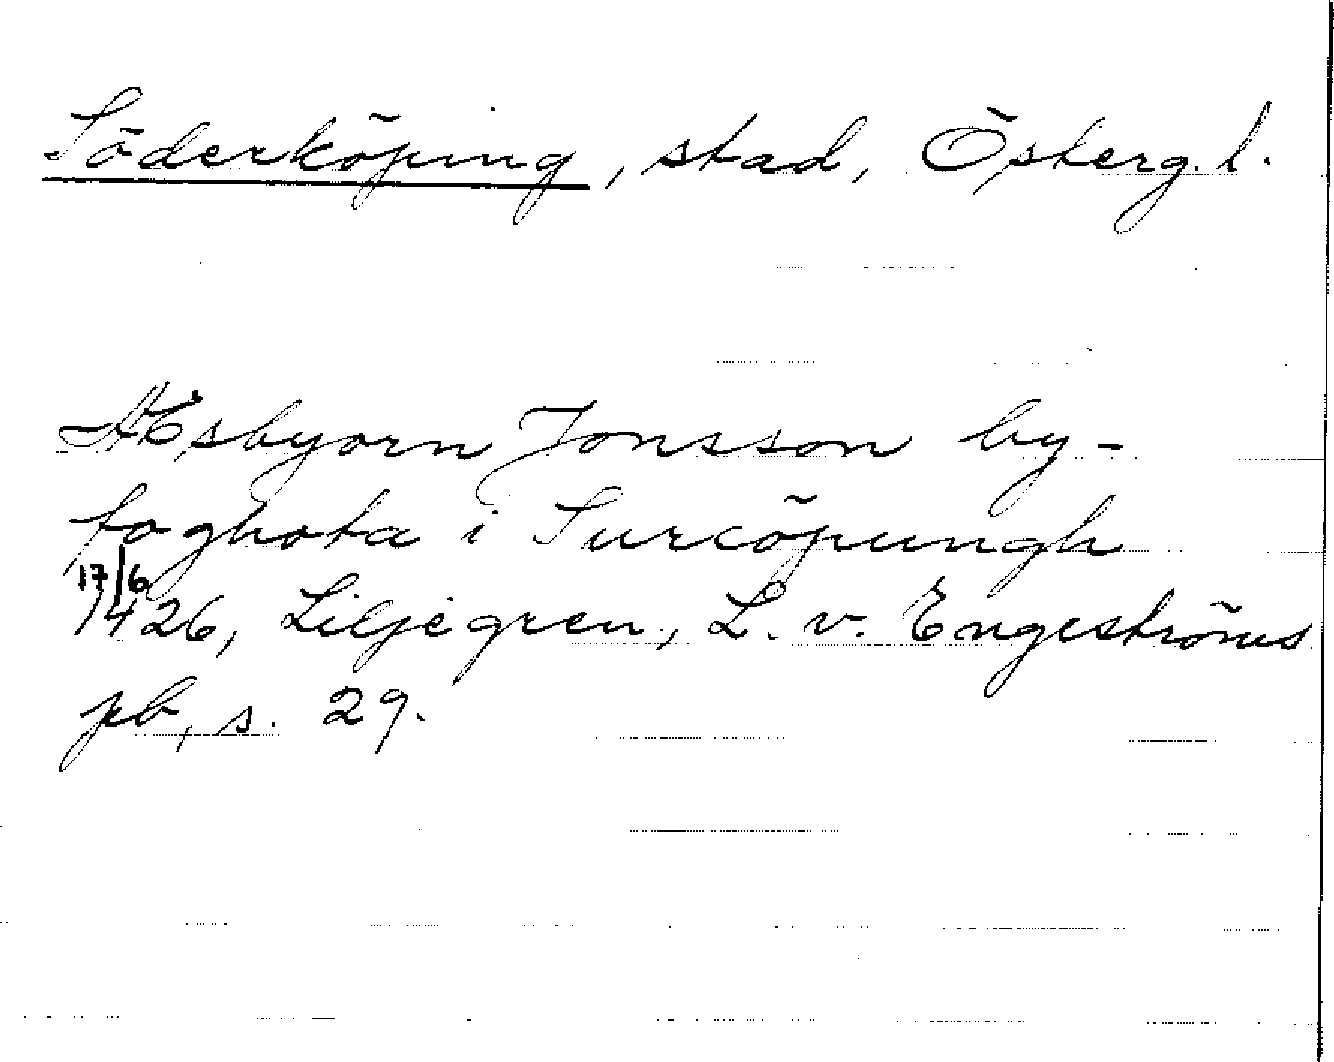 Söderköping, stad, Österg. l.
Æsbyorn Jonsson by-
foghota i Surcöpungh
17/6
1426, Liljegren, L. v. Engeströms
pb, s. 29.